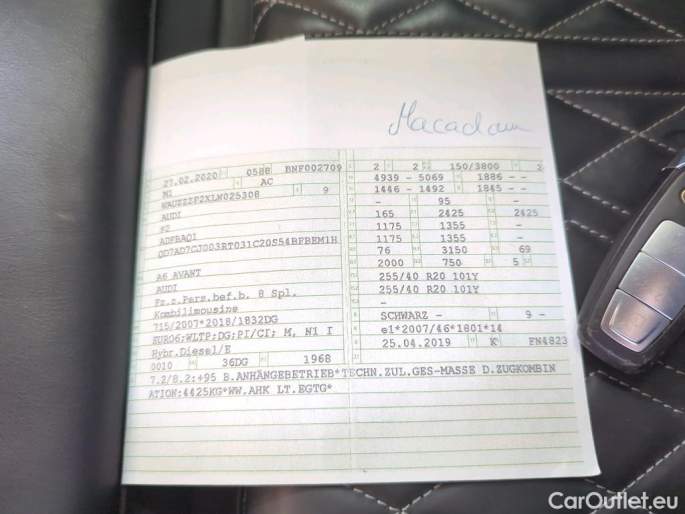 Macadam
27.02.2020 0588 BNF002709
M1 AC
WAUZZZF2XLN025308 9
AUDI
F2
ADFBAQ1
QD7AD7CJ003RT031C20S54BFBEM1H
A6 AVANT
AUDI
Fz.z.Pers.bef.b. 8 Spl.
Kombilimousine
715/2007*2018/1832DG
EURO6;WLTP;DG;PI/CI; M, N1 I
Hybr.Diesel/E
0010 36DG 1968
2 2 150/3800
4939 - 5069 1886 - -
1446 - 1492 1845 - -
- 95 -
165 2425 2425
1175 1355 -
1175 1355 -
76 3150 69
2000 750 5 -
255/40 R20 101Y
255/40 R20 101Y
-
SCHWARZ - 9 -
e1*2007/46*1801*14
25.04.2019 K FN4823
7.2/8.2:+95 B.ANHÄNGEBETRIEB*TECHN.ZUL.GES-MASSE D.ZUGKOMBIN
ATION:4425KG*WW.AHK LT.EGTG*
CarOutlet.eu